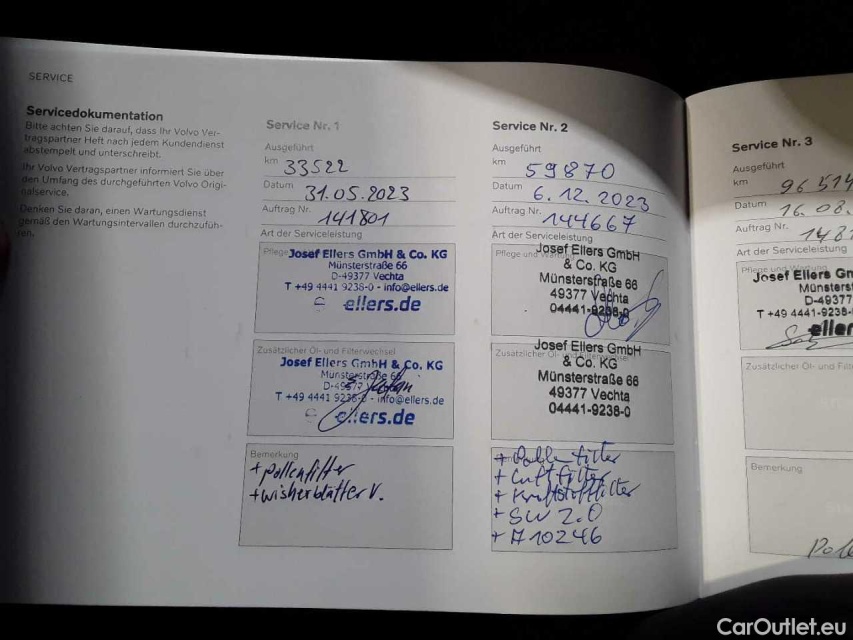 SERVICE
Servicedokumentation
Bitte achten Sie darauf, dass Ihr Volvo Ver-
tragspartner Heft nach jedem Kundendienst
abstempelt und unterschreibt.
Ihr Volvo Vertragspartner informiert Sie über
den Umfang des durchgeführten Volvo Origi-
nalservice.
Denken Sie daran, einen Wartungsdienst
gemäß den Wartungsintervallen durchzufüh-
ren.
Service Nr. 1
Ausgeführt
km 33522
Datum 31.05.2023
Auftrag Nr. 141801
Art der Serviceleistung
Pflege
Josef Ellers GmbH & Co. KG
Münsterstraße 66
D-49377 Vechta
T +49 4441 9238-0 - info@ellers.de
ellers.de
Zusätzlicher Öl- und Filterwechsel
Josef Ellers GmbH & Co. KG
Münsterstraße 66
D-49377
T +49 4441 9238-0 - info@ellers.de
ellers.de
Bemerkung
+pollenfilter
+wisherblätter V.
Service Nr. 2
Ausgeführt
km 59870
Datum 6.12.2023
Auftrag Nr. 144667
Art der Serviceleistung
Pflege und Wartung
Josef Ellers GmbH
& Co. KG
Münsterstraße 66
49377 Vechta
04441-9238-0
Zusätzlicher Öl-
Josef Ellers GmbH
& Co. KG
Münsterstraße 66
49377 Vechta
04441-9238-0
+ Luftfilter
+ Kraftstofffilter
+ SW 2.0
+ A10246
Service Nr. 3
Ausgeführt
km 96514
Datum 16.08.
Auftrag Nr. 148
Art der Serviceleistung
Josef Ellers Gm
Münsterst
D-49377
T +49 4441 9238-
eller
Zusätzlicher Öl- und Filte
Bemerkung
CarOutlet.eu